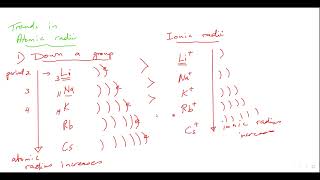 Trends in
Atomic radii
Ionic radii
1) Down a group
period 2 → ₃Li ) ) * > Li⁺ )
3 ₁₁Na ) ) ) * > Na⁺ ) )
4 ₁₉K ) ) ) ) * > K⁺ ) ) )
Rb ) ) ) ) ) * > Rb⁺ ) ) ) )
Cs ) ) ) ) ) ) * Cs⁺ ) ) ) ) )
ionic radius
increases
atomic
radius increases